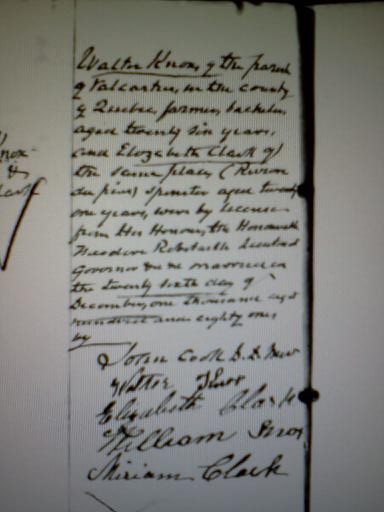 Walter Knox, of the parish
of Valcartier, in the county
of Quebec, farmer, bachelor,
aged twenty six years,
and Elizabeth Clark of
the same place, (Riviere
aux pins) spinster aged twenty
one years, were by license
from His Honour, the Honourable
Theodore Robitaille Lieutenant
Governor &c &c married on
the twenty sixth day of
December, one thousand eight
hundred and eighty one,
by
John Cook D.D. Min
Walter Knox
Elizabeth Clark
William Knox
Miriam Clark
Knox
&
Clark